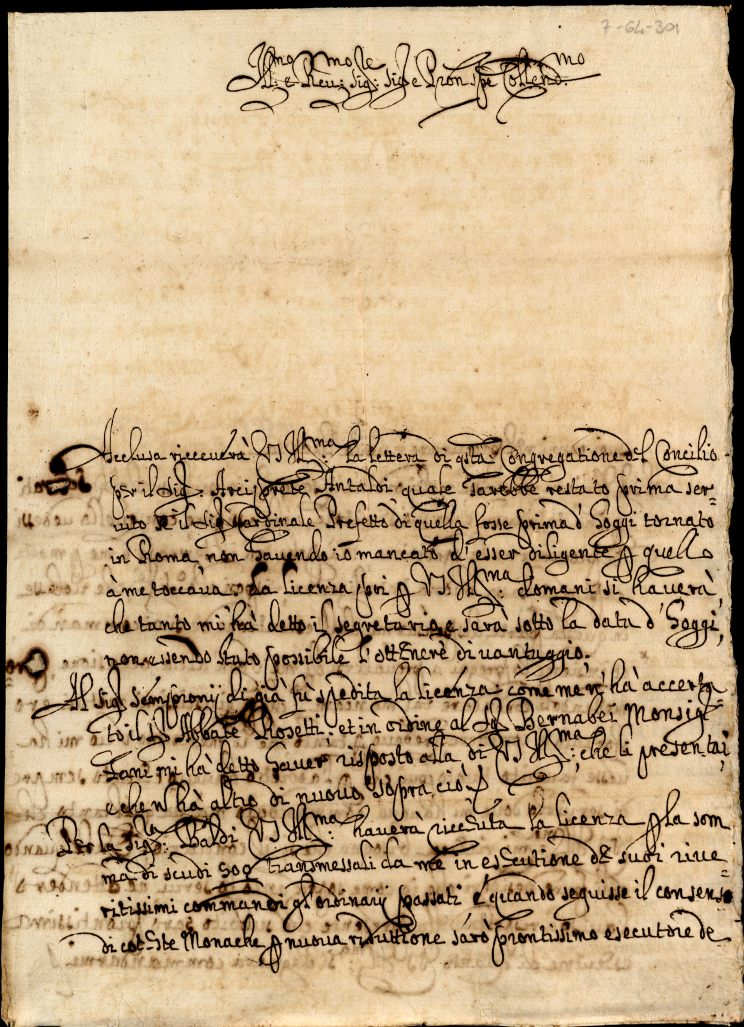 7-64-301
Ill:mo e Reu:mo Sig:re Sig:re e Pron spe Colleno:mo
Acclusa riceverà VS Ill:ma la lettera di qsta Congregatione del Concilio
per il Sig. Arciprete Antaldi quale sarebbe restato prima ser=
uito se il Sig Cardinale Prefetto di quella fosse prima d' Hoggi tornato
in Roma, non hauendo io mancato d'esser diligente p quello
à me toccaua. La licenza poi p VS Ill:ma domani si hauerà,
che tanto mi hà detto il segretario, e sarà sotto la data d' Hoggi,
non essendo stato possibile l'ottenere di uantaggio.
Al Sig Sempronij di già fù spedita la licenza come me n'hà accerta
to il Sig Abbate Rosetti; et in ordine al Sig Bernabei Monsig
Fani mi hà detto hauer risposto alla di VS Ill:ma; che li presentai,
e che n hà altro di nuouo sopra ciò
Per la Sig:ra Baldi VS Ill:ma hauerà riceuuta la licenza p la som
ma di scudi 500 transmessali da me in essecutione de suoi riue
ritissimi commandi gl'ordinarij passati e quando seguisse il consenso
di coteste Monache p nuoua riduttione sarò prontissimo esecutore de